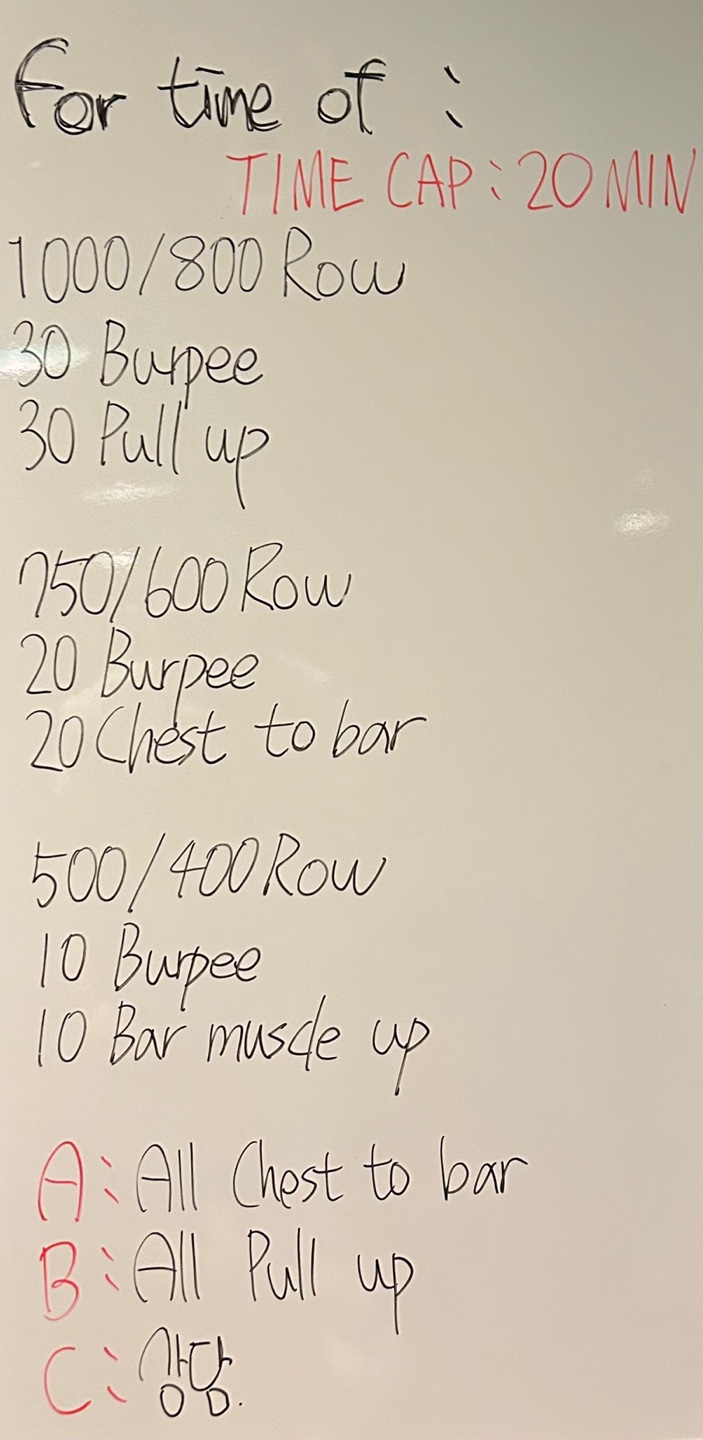 For time of :
TIME CAP : 20 MIN
1000/800 Row
30 Burpee
30 Pull up
750/600 Row
20 Burpee
20 Chest to bar
500/400 Row
10 Burpee
10 Bar muscle up
A : All Chest to bar
B : All Pull up
C : 상담.